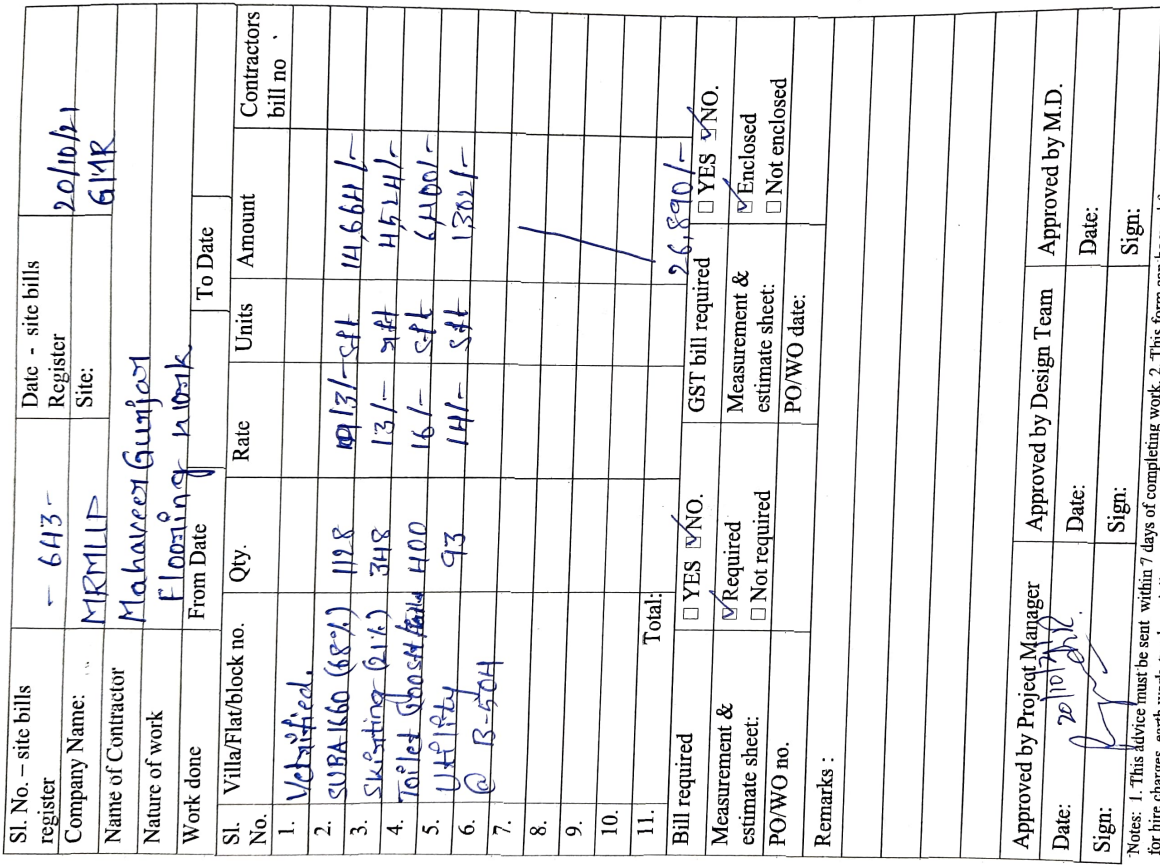 Sl. No. – site bills register - 643 - Date - site bills Register 20/10/21
Company Name: MRMLLP Site: GMR
Name of Contractor Mahaveer Gunjar
Nature of work Flooring work
Work done From Date To Date
Sl. No. Villa/Flat/block no. Qty. Rate Units Amount Contractors bill no
1. Vetrified,
2. SUBA 1660 (68%) 1128 13/- sft 14,664/-
3. Skirting (21%) 348 13/- rft 4524/-
4. Toilet 400 16/- sft 6,400/-
5. Utility 93 14/- sft 1,302/-
6. @ B-504
7.
8.
9.
10.
11. Total: 26,890/-
Bill required □ YES ☑ NO. GST bill required □ YES ☑ NO.
Measurement & estimate sheet: ☑ Required Measurement & estimate sheet: ☑ Enclosed
□ Not required □ Not enclosed
PO/WO no. PO/WO date:
Remarks :
Approved by Project Manager Approved by Design Team Approved by M.D.
Date: 20/10/21 Date: Date:
Sign: Sign: Sign:
Notes: 1. This advice must be sent within 7 days of completing work. 2. This form can be used for
for hire charges, earth work